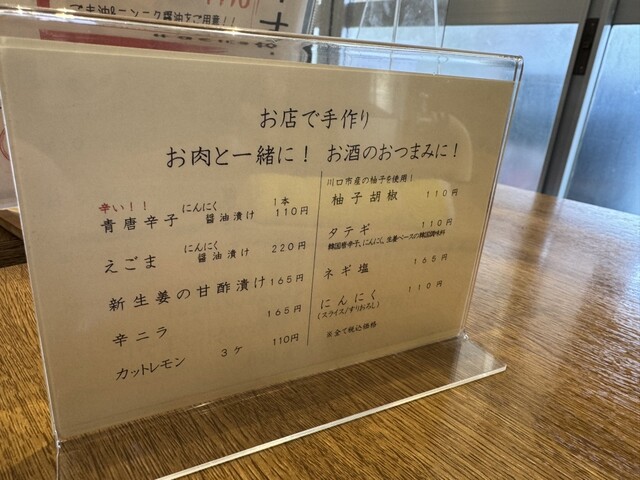 ごま油&ニンニク醤油をご用意!!
お店で手作り
お肉と一緒に! お酒のおつまみに!
辛い!! にんにく 1本
青唐辛子 醤油漬け 110円
にんにく
えごま 醤油漬け 220円
新生姜の甘酢漬け 165円
辛ニラ 165円
カットレモン 3ケ 110円
川口市産の柚子を使用!
柚子胡椒 110円
タテギ 110円
韓国唐辛子、にんにく、生姜ベースの韓国調味料
ネギ塩 165円
にんにく 110円
(スライス/すりおろし)
※全て税込価格